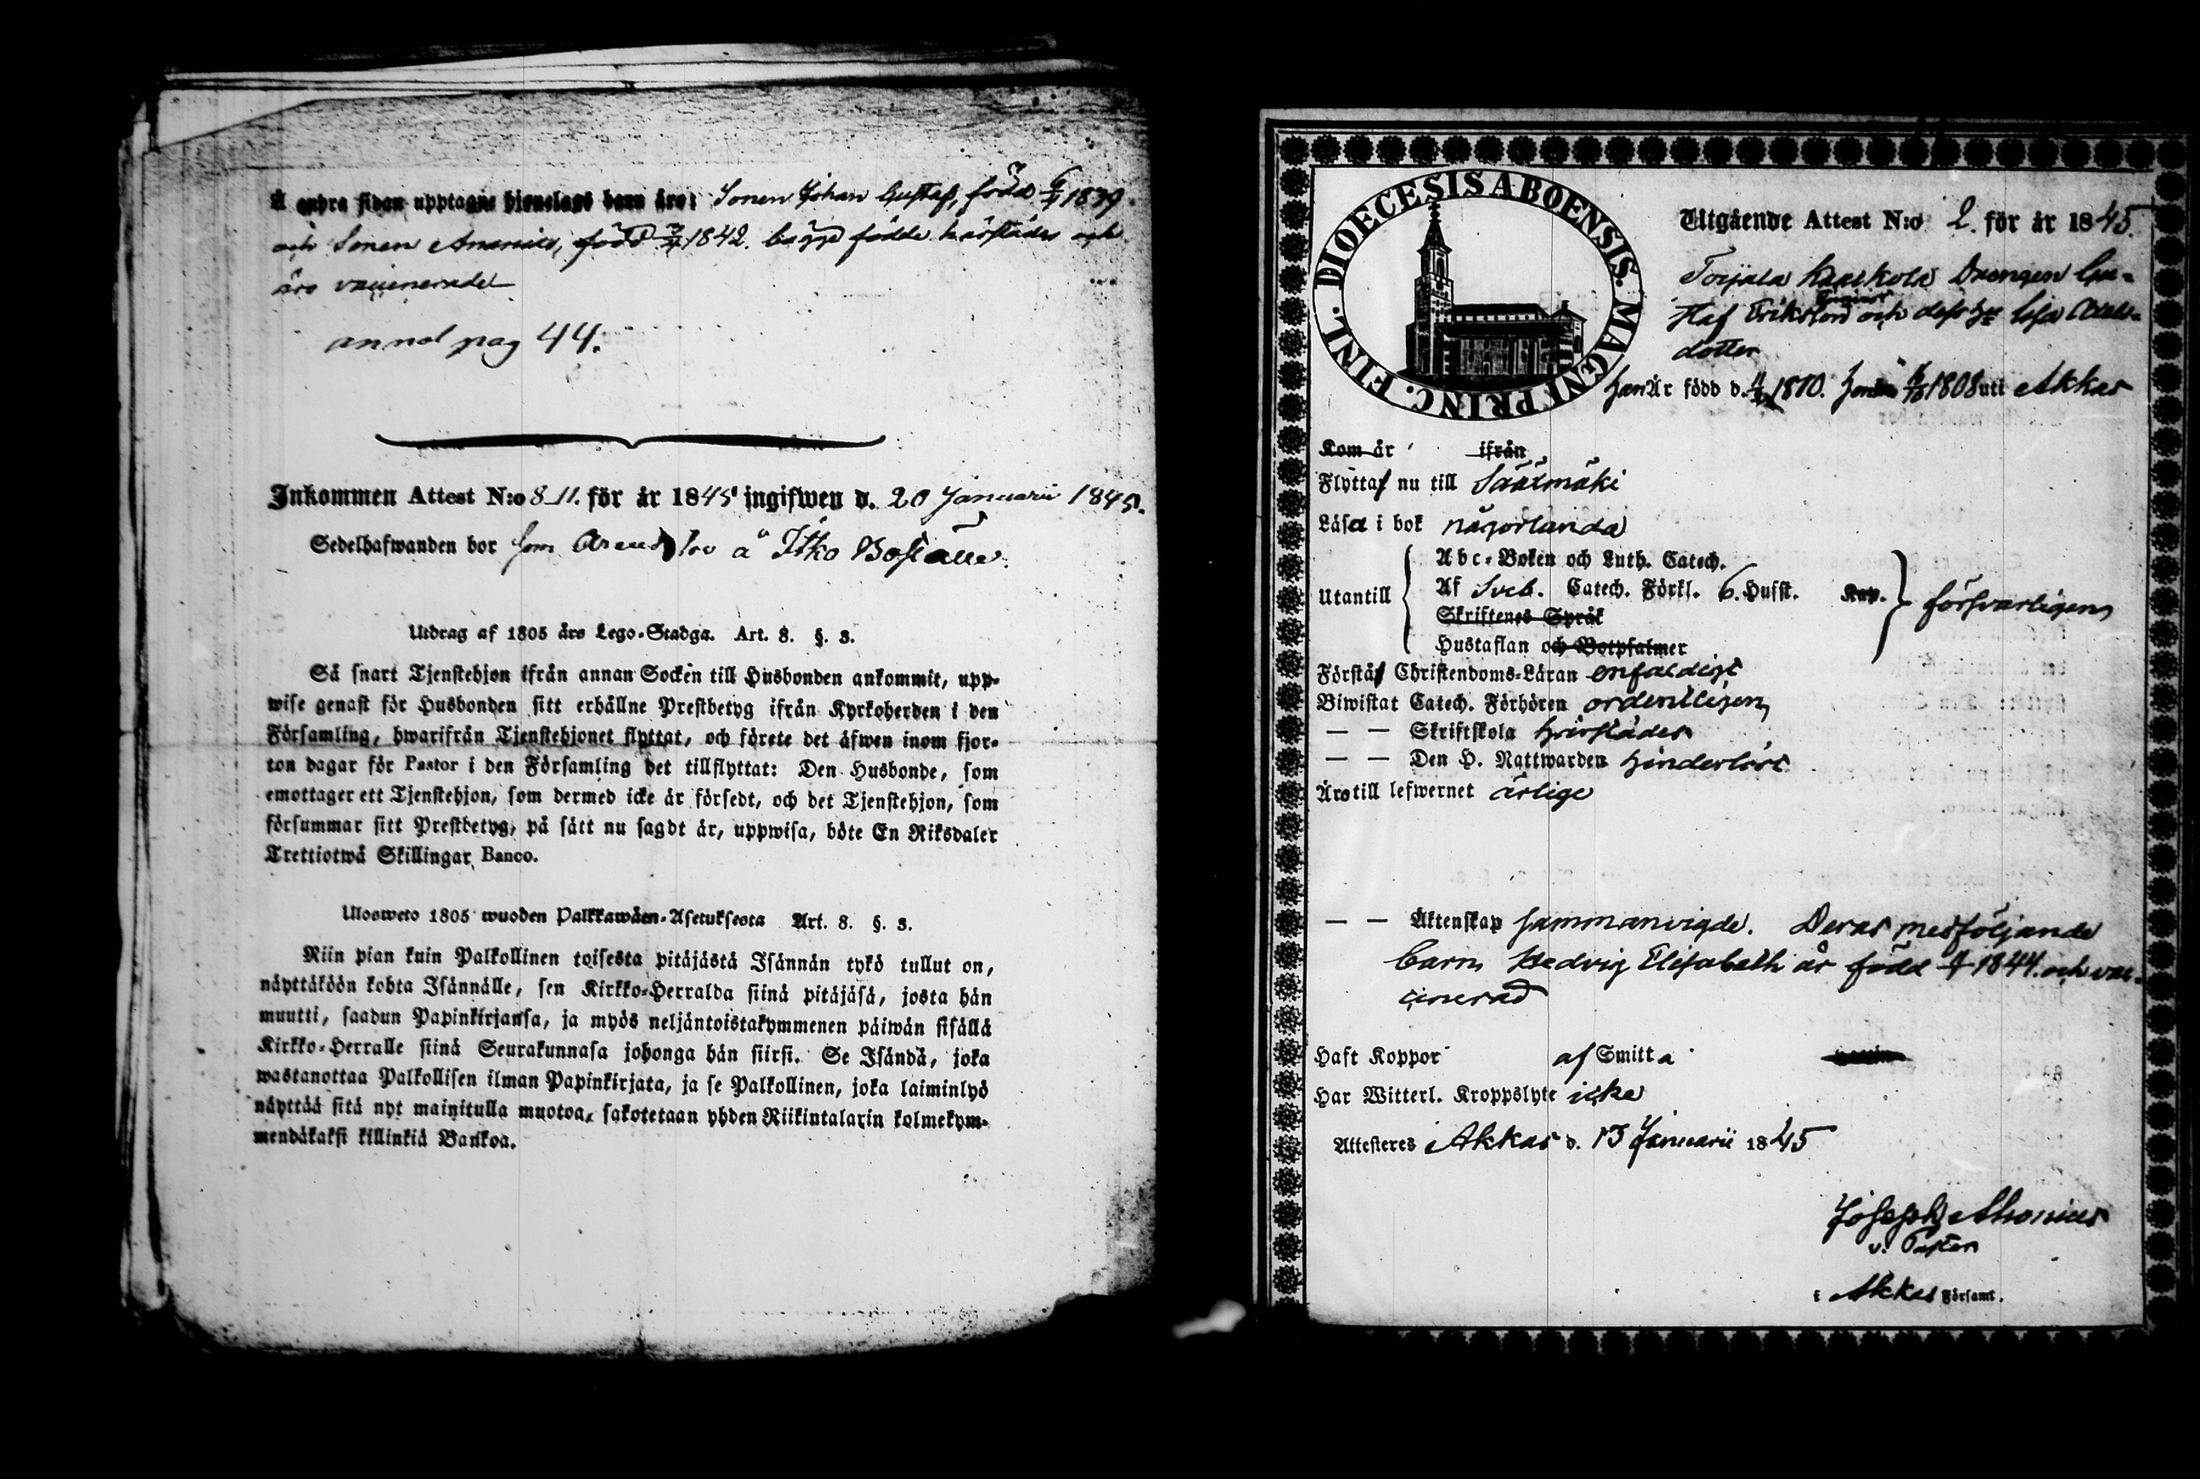 Å andra sidan upptagne hjonelags barn äro: Sonen Johan Gustaf, född 6/1 1839
och Sonen Ananias, född 1842. bägge födde härstädes och
äro vaccinerade
annot pag 44.
Inkommen Attest N:o 8_11. för år 1845 ingifwen d. 20 Januarii 1845.
Sedelhafwanden bor som å Itko Boställe.
Utdrag af 1805 års Lego-Stadga. Art. 8. §. 3.
Så snart Tjenstehjon ifrån annan Socken till Husbonden ankommit, upp-
wise genast för Husbonden sitt erhållne Prestbetyg ifrån Kyrkoherden i den
Församling, hwarifrån Tjenstehjonet flyttat, och förete det äfwen inom fjor-
ton dagar för Pastor i den Församling det tillflyttat: Den Husbonde, som
emottager ett Tjenstehjon, som dermed icke är försedt, och det Tjenstehjon, som
försummar sitt Prestbetyg, på sätt nu sagdt är, uppwisa, böte En Riksdaler
Trettiotwå Skillingar Banco.
Ulosweto 1805 wuoden Palkkawäen-Asetuksesta Art. 8. §. 3.
Niin pian kuin Palkollinen toisesta pitäjästä Isännän tykö tullut on,
näyttäköön kohta Isännälle, sen Kirkko-Herralda siinä pitäjäsä, josta hän
muutti, saadun Papinkirjansa, ja myös neljäntoistakymmenen päiwän sisällä
Kirkko-Herralle siinä Seurakunnasa johonga hän siirsi. Se Isändä, joka
wastanottaa Palkollisen ilman Papinkirjata, ja se Palkollinen, joka laiminlyö
näyttää sitä nyt mainitulla muotoa, sakotetaan yhden Riikintalarin kolmekym-
mendäkaksi killinkiä Bankoa.
DIOECESIS ABOENSIS. MAGNI PRINC. FINL.
Utgående Attest N:o 2. för år 1845.
Toijala Drengen Gu-
staf Eriksson och dess h:u Lisa
dotter
Han Är född d. 1810. Hon 1808 uti Akkas
Kom år ifrån
Flytta nu till Sääxmäki
Läsa i bok någorlunda
Utantill
Abc-Boken och Luth. Catech.
Af Sveb. Catech. Förkl. 6. Hufst. Kap. försvarligen
Skriftenes Språk
Hustaflan och Botpsalmer
Förstå Christendoms-Läran enfaldigt
Biwistat Catech. Förhören ordentligen
— — Skriftskola härstädes
— — Den H. Nattwarden hinderlöst
Äro till lefwernet ärlige
— — Äktenskap sammanvigde. Deras medföljande
barn Hedvig Elisabeth är född 1844. och vac-
cinerad
Haft Koppor af Smitta
Har Witterl. Kroppslyte icke
Attesteres Akkas d. 13 Januarii 1845
Joseph
v. Pastor
i Akkas Församl.